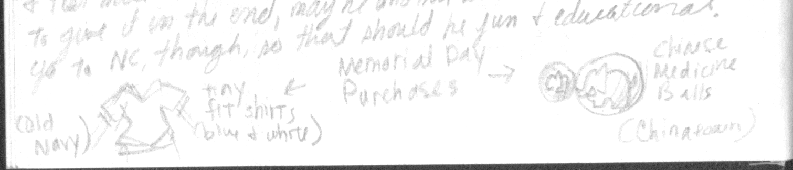 to give it in the end, maybe
go to NC, though, so that should be fun & educational.
(Old
Navy)
tiny
fit shirts
(blue & white)
Memorial Day
Purchases
Chinese
Medicine
Balls
(Chinatown)